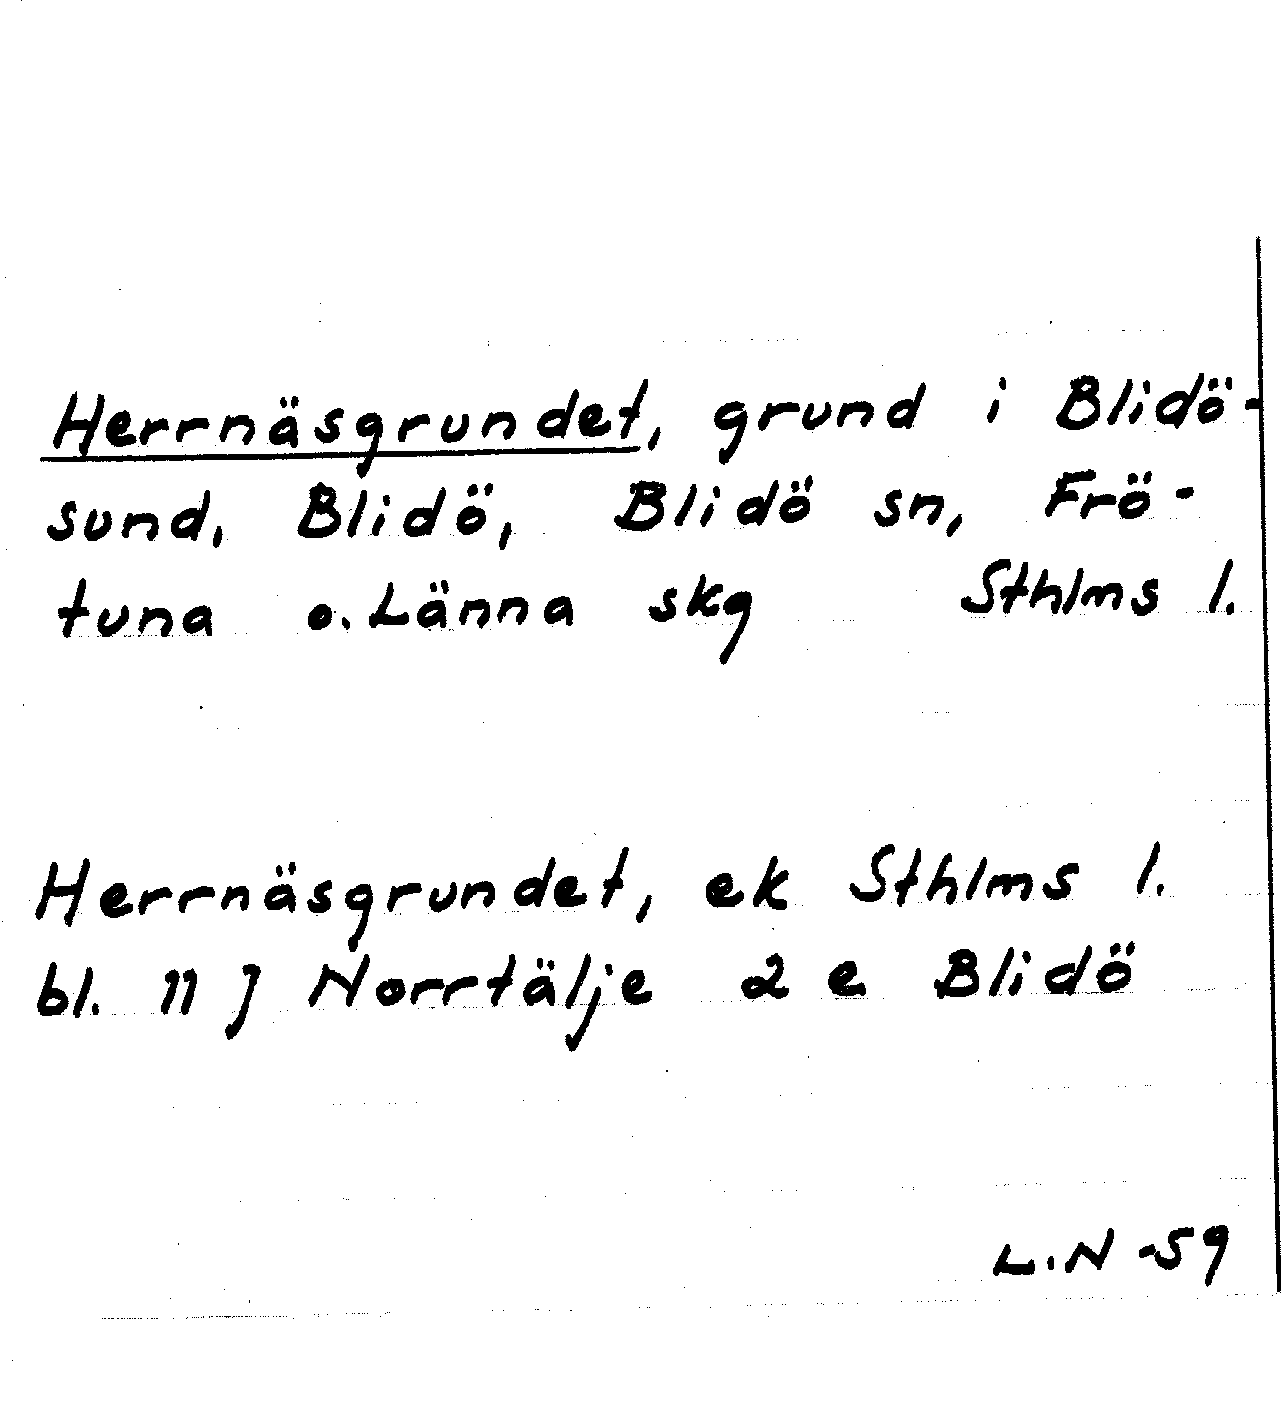 Herrnäsgrundet, grund i Blidö-
sund, Blidö, Blidö sn, Frö-
tuna o. Länna skg Sthlms l.
Herrnäsgrundet, ek Sthlms l.
bl. 11 J Norrtälje 2 e Blidö
L.N -59